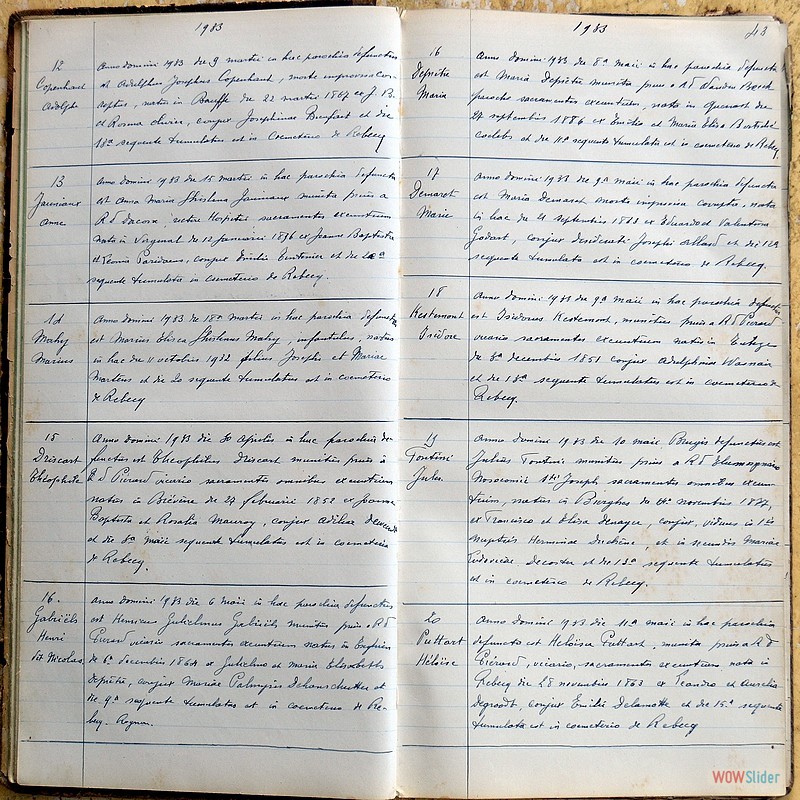 1933
12
Copenhaut
Adolphe
Anno domini 1933 die 9 martii in hac parochia defunctus
est Adolphus Josephus Copenhaut, morte improvisa cor-
reptus, natus in die 22 martii 1867 ex J. B.
et Rosina Olivier, conjux Josephinae et die
18a sequente tumulatus est in Coemeterio de Rebecq
13
Janniaux
Anne
Anno domini 1933 die 15 martii in hac parochia defuncta
est Anna Maria Ghislena Janniaux munita prius a
R d Lacosse, rectore Hospitii sacramentis exeuntium
nata in Virginal die 12 januarii 1836 ex Joanne Baptista
et Leonia Paridaens, conjux et die 20a
sequente tumulata in coemeterio de Rebecq.
14
Mahy
Marius
Anno domini 1933 die 18a Martii in hac parochia defunctus
est Marius Elisea Ghislenus Mahy, infantulus, natus
in hac die 11 octobris 1932 filius Josephi et Mariae
Martens et die 20 sequente tumulatus est in coemeterio
de Rebecq
15
Driscart
Théophile
Anno domini 1933 die 30 Aprilis in hac parochia de-
functus est Theophilus Driscart munitus prius a
R d Pierard vicario sacramentis omnibus exeuntium
natus in Biévène die 27 februarii 1852 ex Joanne
Baptista et Rosalia Mauroy, conjux
et die 3a maii sequente tumulatus est in coemeterio
de Rebecq.
16.
Gabriëls
Henri
dit Nicolas
Anno domini 1933 die 6 maii in hac parochia defunctus
est Henricus Gulielmus Gabriëls munitus prius a R d
Pierard vicario sacramentis exeuntium natus in Enghien
die 6a decembris 1864 ex Gulielmo et Maria Elisabetha
Depetre, conjux Mariae Palmyrae et
die 9a sequente tumulatus est in coemeterio de Re-
becq.
1933
43
16
Deprêtre
Maria
Anno Domini 1933 die 8a Maii in hac parochia defuncta
est Maria Depretre munita prius a R d Vanden Bosch
parocho sacramentis exeuntium, nata in Quenast die
27 septembris 1886 ex Emilio et Maria Elisa
coelebs et die 11a sequente tumulata est in coemeterio de Rebecq
17
Demaret
Marie
Anno domini 1933 die 9a maii in hac parochia defuncta
est Maria Demaret morte improvisa correpta, nata
in hac die 4 septembris 1873 ex Eduardo et Valentina
Godart, conjux Desiderati Josephi Allard et die 12a
sequente tumulata in coemeterio de Rebecq.
18
Kestemont
Isidore
Anno domini 1933 die 9a maii in hac parochia defunctus
est Isidorus Kestemont, munitus prius a R d Pierard
vicario sacramentis exeuntium natus in
die 8a decembris 1851 conjux Adelphinae
et die 13a sequente tumulatus est in coemeterio de
Rebecq.
19
Tontini
Jules
Anno domini 1933 die 10 maii Brugis defunctus est
Julius Tontini munitus prius a R d Eleemosynario
Nosocomii Sti Joseph sacramentis omnibus exeun-
tium, natus in Burghes die 4a novembris 1877,
ex Francisco et Elisa Denayer, conjux, viduus in 1is
nuptiis Herminae Duchêne, et in secundis Mariae
Ludovicae Decoster et die 13a sequente tumulatus
est in coemeterio de Rebecq.
20
Puttart
Héloïse
Anno domini 1933 die 11a maii in hac parochia
defuncta est Heloïsa Puttart, munita prius a R d
Pierard, vicario, sacramentis exeuntium nata in
Rebecq die 28 novembris 1863 ex Leandro et Aurelia
Degroodt, conjux Emilii Delamotte et die 15a sequente
tumulata est in coemeterio de Rebecq
WOWSlider